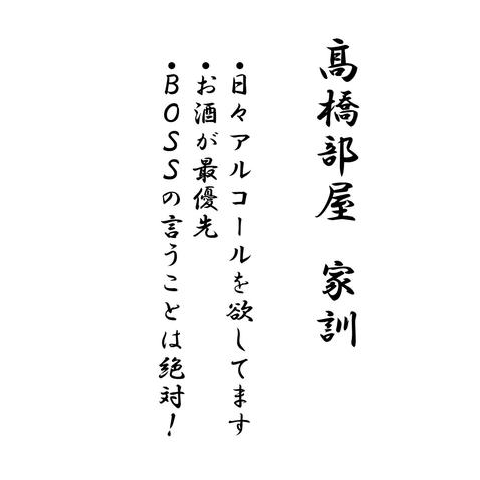 髙橋部屋　家訓
•日々アルコールを欲してます
•お酒が最優先
•BOSSの言うことは絶対！